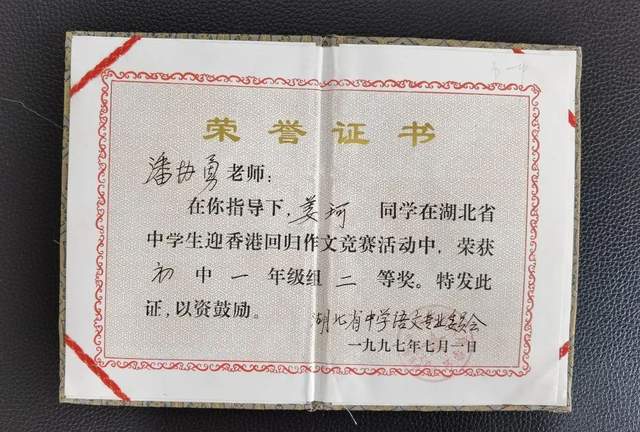 荣誉证书
潘协勇老师:
在你指导下,姜珂 同学在湖北省
中学生迎香港回归作文竞赛活动中,荣获
初 中 一 年级组 二 等奖。特发此
证,以资鼓励。
湖北省中学语文专业委员会
一九九七年七月一日